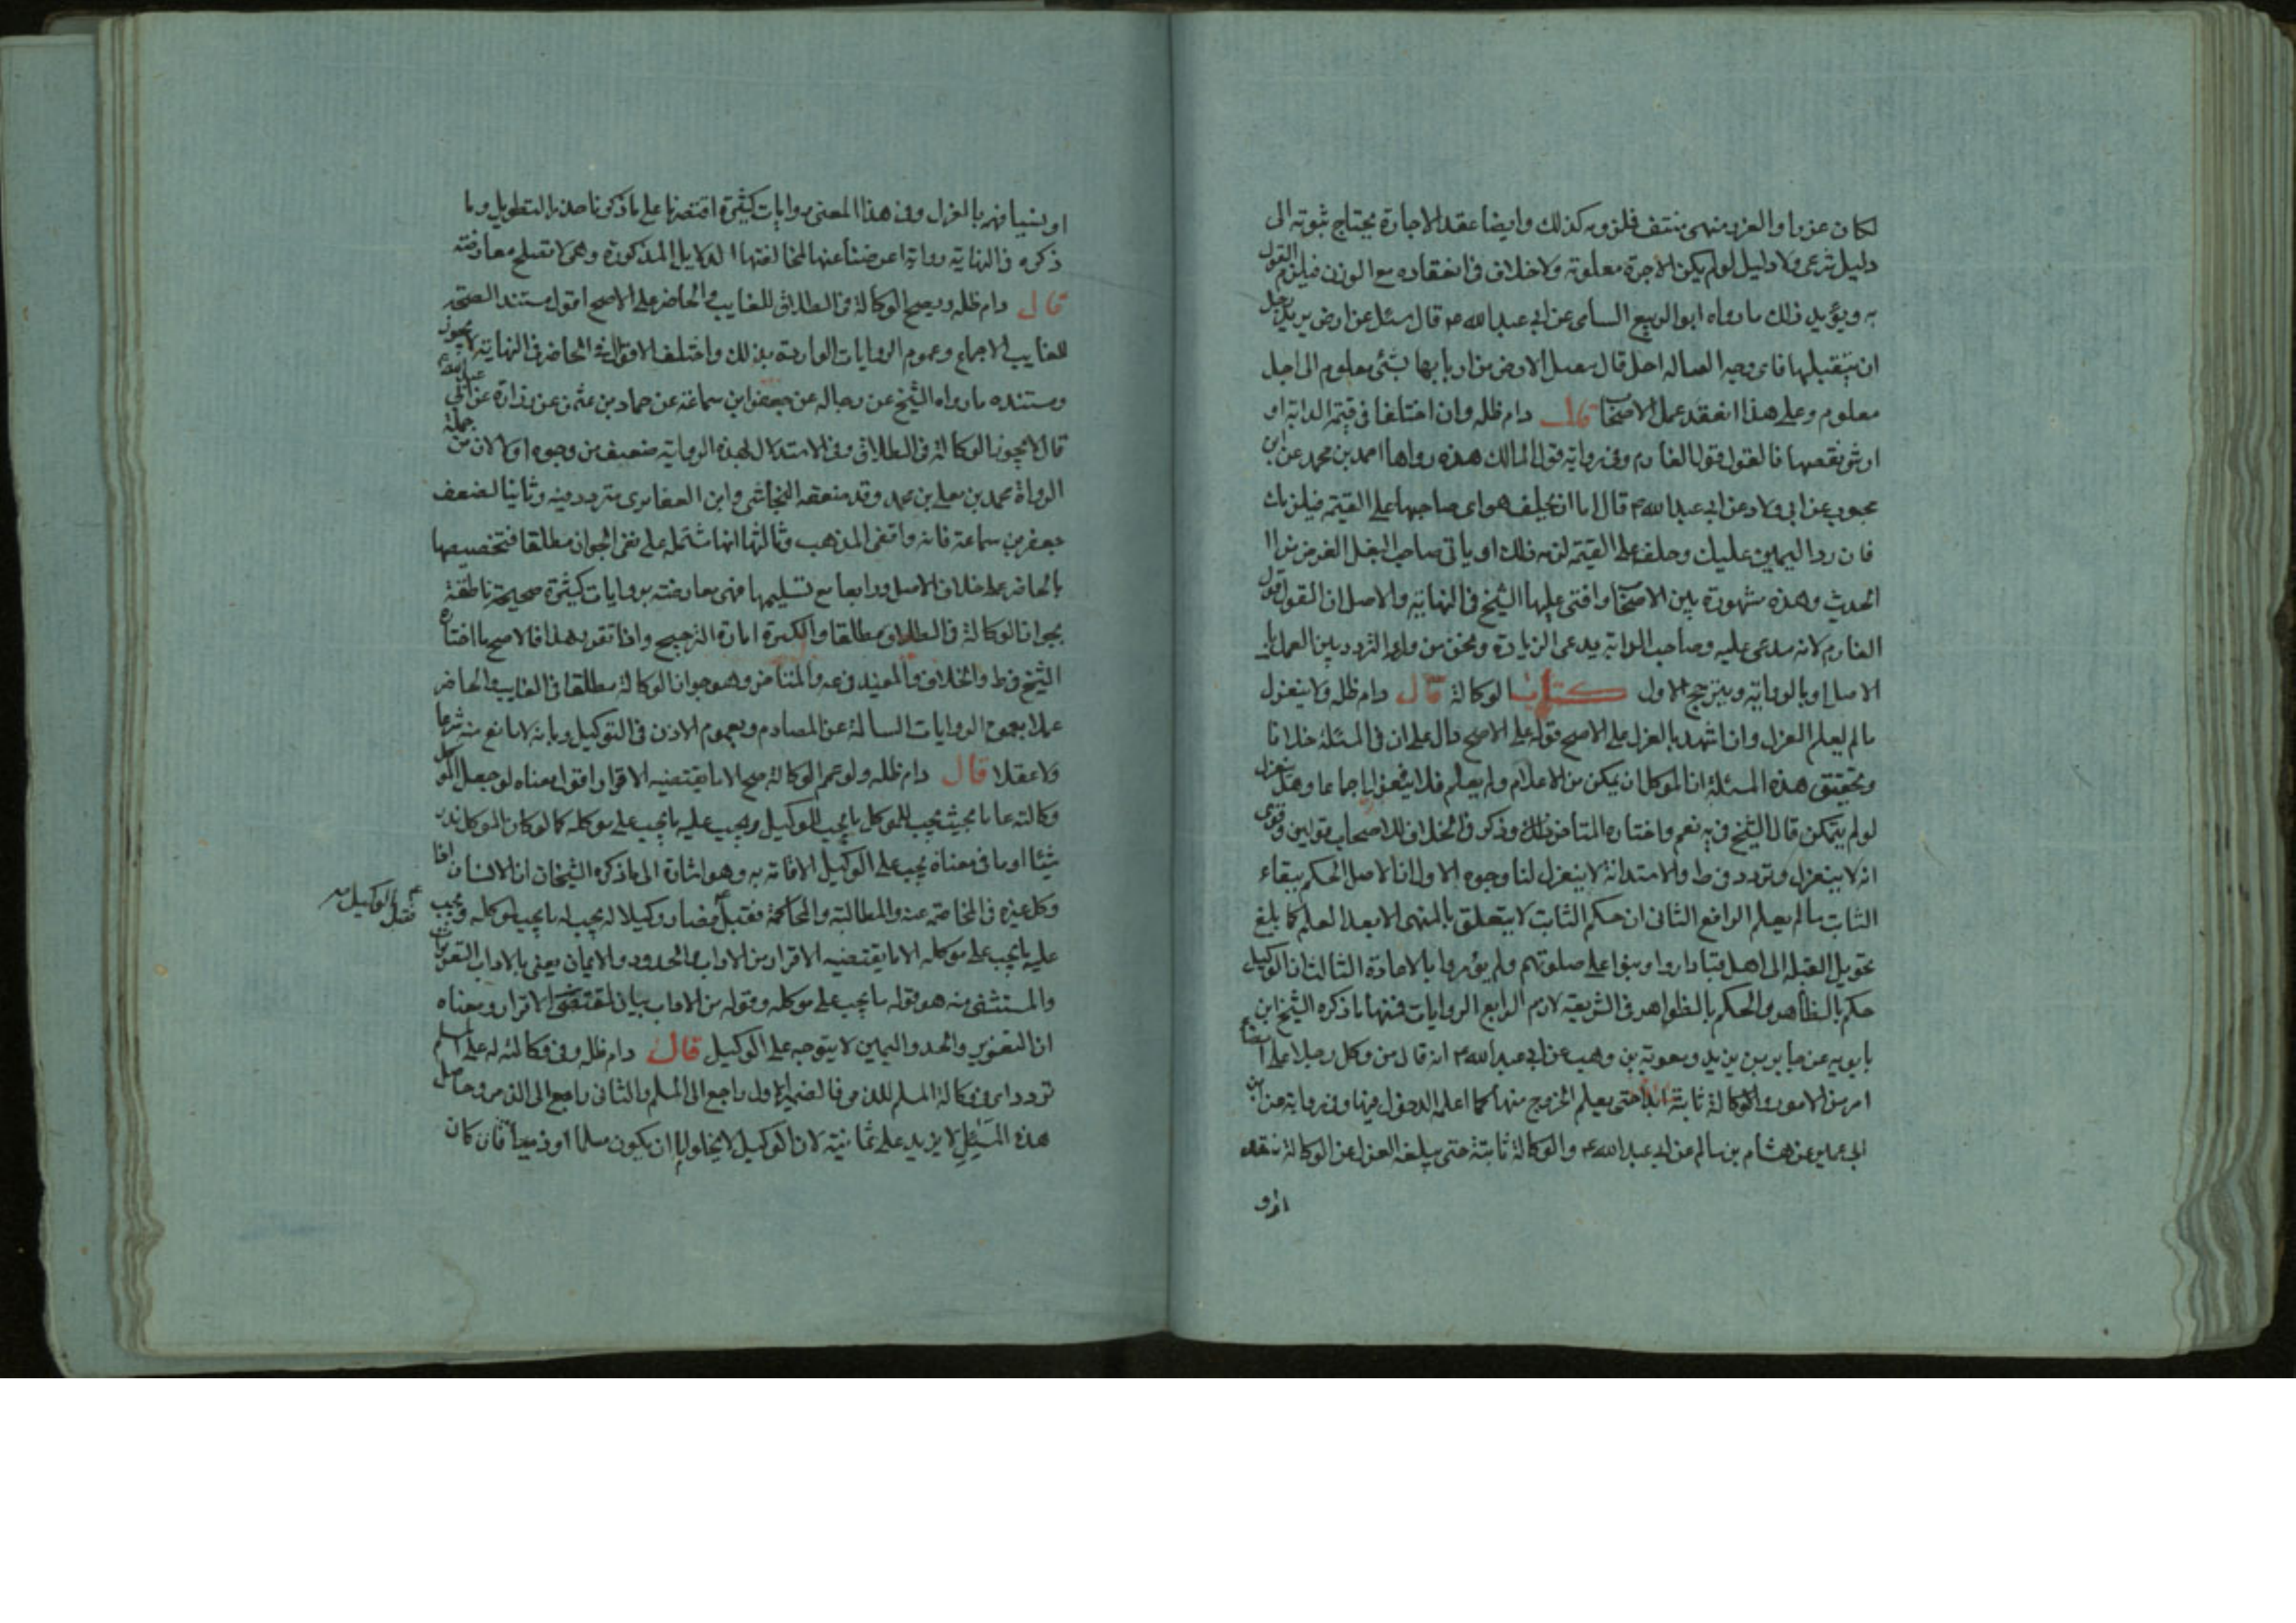 لكان عزرا والغرر منهى منتف فلزومه كذلك وايضا عقد الاجارة يحتاج ثبوته الى
دليل شرعى ولا دليل لو لم يكن الاجرة معلومة ولا خلاف فى انعقاده مع الوزن فيلزم القول
به ويؤيد ذلك ما رواه ابو الربيع السامى عن ابى عبد الله ع قال سئل عن ارض يريد رجل
ان يتقبلها فاى وجيه القباله احل قال يتقبل الارض من اربابها بشئ معلوم الى اجل
معلوم وعلى هذا انعقد عمل الاصحاب قال دام ظله وان اختلفا فى قيمة الدابة او
ارش نقصها فالقول قول الغارم وفى رواية قول المالك هذه رواها احمد بن محمد عن ابن
محبوب عن ابى ولاد عن ابى عبد الله ع قال اما ان يحلف هو اى صاحبها على القيمة فيلزمك
فان رد اليمين عليك وحلف على القيمة لزمه ذلك او ياتى صاحب البغل الغرض من ا
الحديث وهذه مشهورة بين الاصحاب وافتى عليها الشيخ فى النهاية والاصل ان القول قول
الغارم لانه مدعى عليه وصاحب الدابة يدعى الزيادة ونحن من وراء التردد بين العمل با
الاصل او بالرواية ويترجح الاول كتاب الوكالة قال دام ظله ولا ينعزل
ما لم يعلم العزل وان اشهد بالعزل على الاصح قوله على الاصح دال على ان فى المسئلة خلافا
وتحقيق هذه المسئلة ان الموكل ان يمكن من الاعلام ولم يعلم فلا ينعزل اجماعا وهل ينعزل
لو لم يتمكن قال الشيخ فى يه نعم واختاره المتاخر وذكر فى الخلاف للاصحاب قولين وقوى
انه لا ينعزل وتردد فى ط والاستدانة لا ينعزل لنا وجوه الاول ان الاصل الحكم ببقاء
الثابت ما لم يعلم الرافع الثانى ان حكم الثابت لا يتعلق بالمنهى الا بعد العلم كما بلغ
تحويل القبلة الى اهل قبا داروا وبنوا على صلوتهم ولم يؤمروا بالاعادة الثالث ان الوكيل
حكم بالظاهر والحكم بالظواهر فى الشريعة لازم الرابع الروايات فمنها ما ذكره الشيخ ابن
بابويه عن جابر بن يزيد ومعوية بن وهب عن ابى عبد الله ع انه قال من وكل رجلا على امضاء
امر من الامور والوكالة ثابتة ابدا حتى يعلم الخروج منها كما اعلمه الدخول فيها وفى رواية عن ابن
ابى عمير عن هشام بن سالم عن ابى عبد الله ع والوكالة ثابتة حتى يبلغه العزل عن الوكالة بثقة
او
او يشافهه بالعزل وفى هذا المعنى روايات كثيرة اقتصرنا على ما ذكرنا حذرا للتطويل وما
ذكره فى النهاية رواية اعرضنا عنها لمخالفتها الدلايل المذكورة وهى لا تصلح معارضة
قال دام ظله ويصح الوكالة فى الطلاق للغايب والحاضر على الاصح اقول مستند الصحة
للغايب الاجماع وعموم الروايات الواردة بذلك واختلف الاقوال فى الحاضر فى النهاية لا يجوز
ومستنده ما رواه الشيخ عن رجاله عن جعفر ابن سماعة عن حماد بن عثمن عن زرارة عن ابى عبد الله ع
قال لا يجوز الوكالة فى الطلاق وفى الاستدلال بهذه الرواية ضعيف من وجوه اولا لان من جملة
الرواة محمد بن معلى بن محمد وقد ضعفه النجاشى وابن الغضايرى متردد فيه وثانيا لضعف
جعفر بن سماعة فانه واقفى المذهب وثالثها انها مشتملة على نفى الجواز مطلقا فتخصيصها
بالحاضر على خلاف الاصل ورابعا مع تسليمها فهى معارضة بروايات كثيرة صحيحة ناطقة
بجواز الوكالة فى الطلاق مطلقا والكثرة امارة الترجيح واذا تقرر هذا فالاصح ما اختاره
الشيخ فى ط والخلاف والمفيد فى عه والمتاخر وهو جواز الوكالة مطلقا فى الغايب والحاضر
عملا بعموم الروايات السالمة عن المصادم وبعموم الاذن فى التوكيل وبانه لا مانع منه شرعا
ولا عقلا قال دام ظله ولو عمم الوكالة صح الا ما يقتضيه الاقرار اقول معناه لو جعل الموكل
وكالته عامة بحيث يجب للموكل ما يجب للوكيل ويجب عليه ما يجب على موكله كما لو كان الموكل نذر
شيئا او ما فى معناه يجب على الوكيل الاقامة به وهو اشارة الى ما ذكره الشيخان ان الانسان اذا
وكل غيره فى المخاصمة عنه والمطالبة والمحاكمة فقبل فصار وكيلا له يجب له ما يجب لموكله ويجب
فقبل الوكيل منه
عليه ما يجب على موكله الا ما يقتضيه الاقرار من الاداب والحدود والايمان يعنى بالاداب التعزيرات
والمستثنى منه هو قوله ما يجب على موكله وقوله من الاداب بيان لمقتضى الاقرار ومعناه
ان التعزير والحد واليمين لا يتوجه على الوكيل قال دام ظله وفى وكالته له على المسلم
تردد اى وكالة المسلم للذمى فالضمير الاول راجع الى المسلم والثانى راجع الى الذمى وحاصل
هذه المسئلة لا يزيد على ثمانية لان الوكيل لا يخلو اما ان يكون مسلما او ذميا فان كان